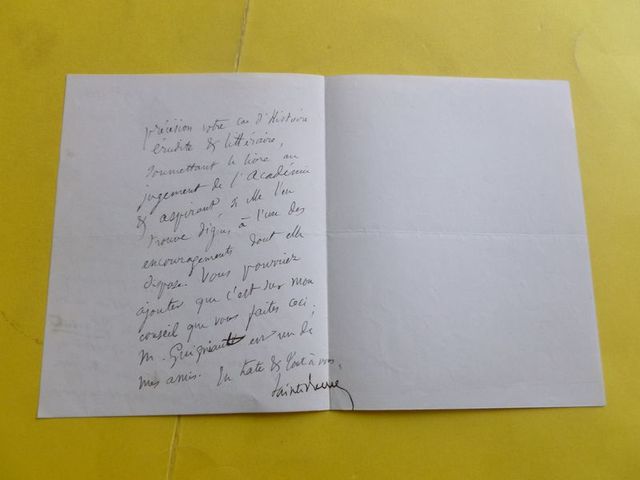 précision votre cas d'histoire
érudite & littéraire,
soumettant le livre au
jugement de l'Académie
& aspirant si elle l'en
trouve digne à l'un des
encouragements dont elle
dispose. Vous pourriez
ajouter que c'est sur mon
conseil que vous faites ceci.
M. Guigniaut est un de
mes amis. En hate & tout à vous,
Sainte-Beuve